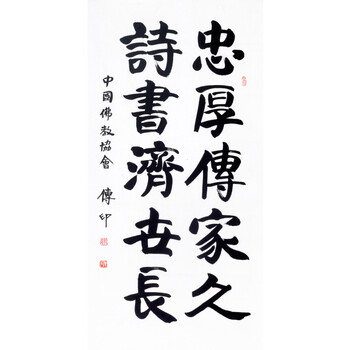 忠厚傳家久
詩書濟世長
中國佛教協會 傳印